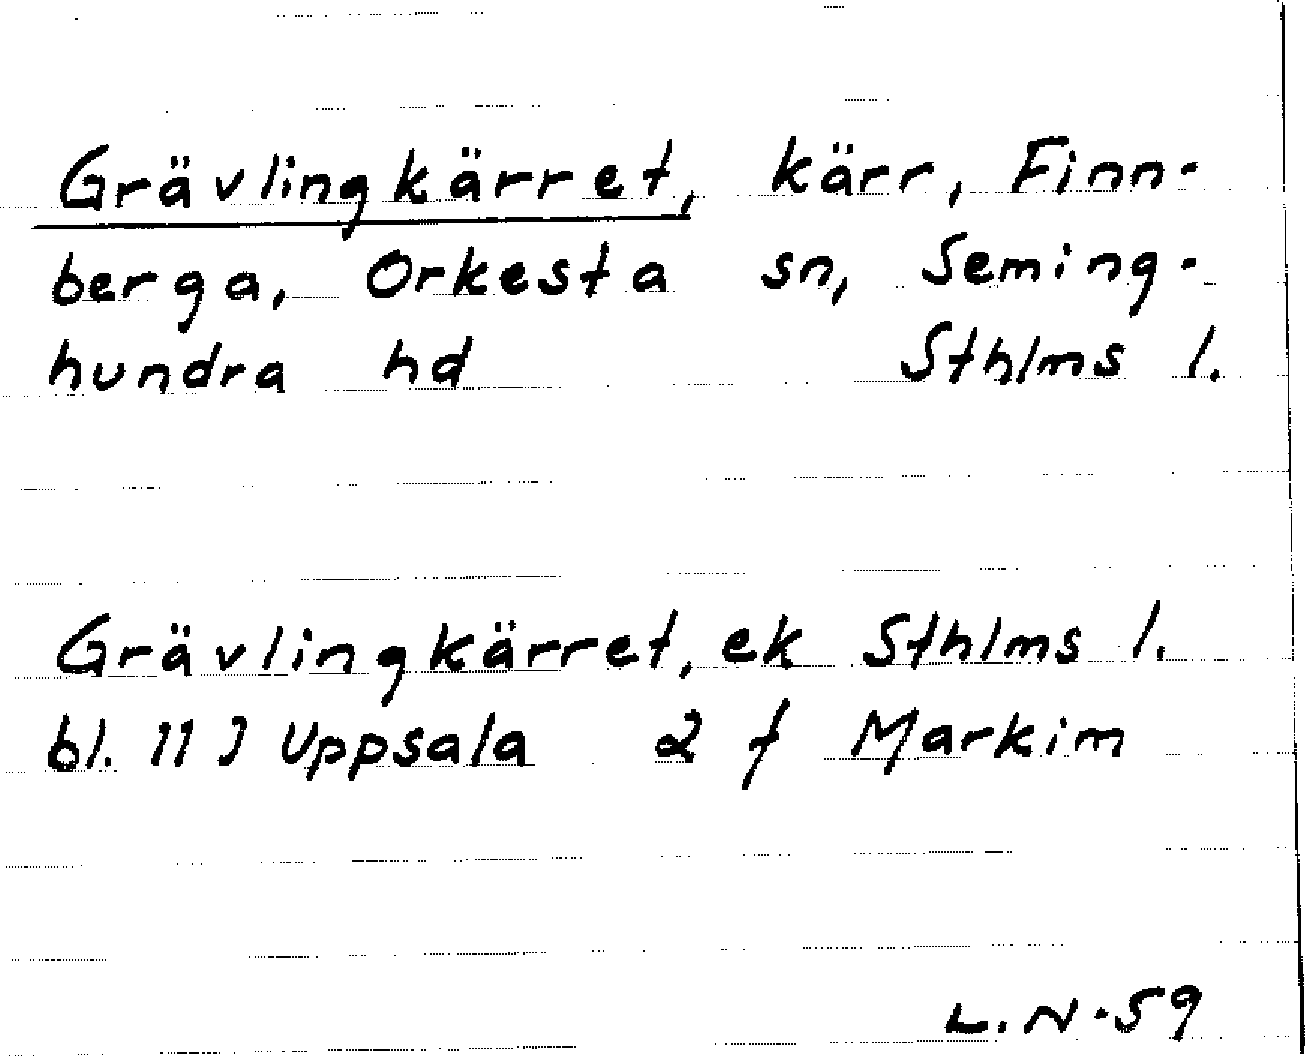 Grävlingkärret, kärr, Finn-
berga, Orkesta sn, Seming-
hundra hd Sthlms l.
Grävlingkärret, ek Sthlms l.
bl. 11 J Uppsala 2 f Markim
L. N-59